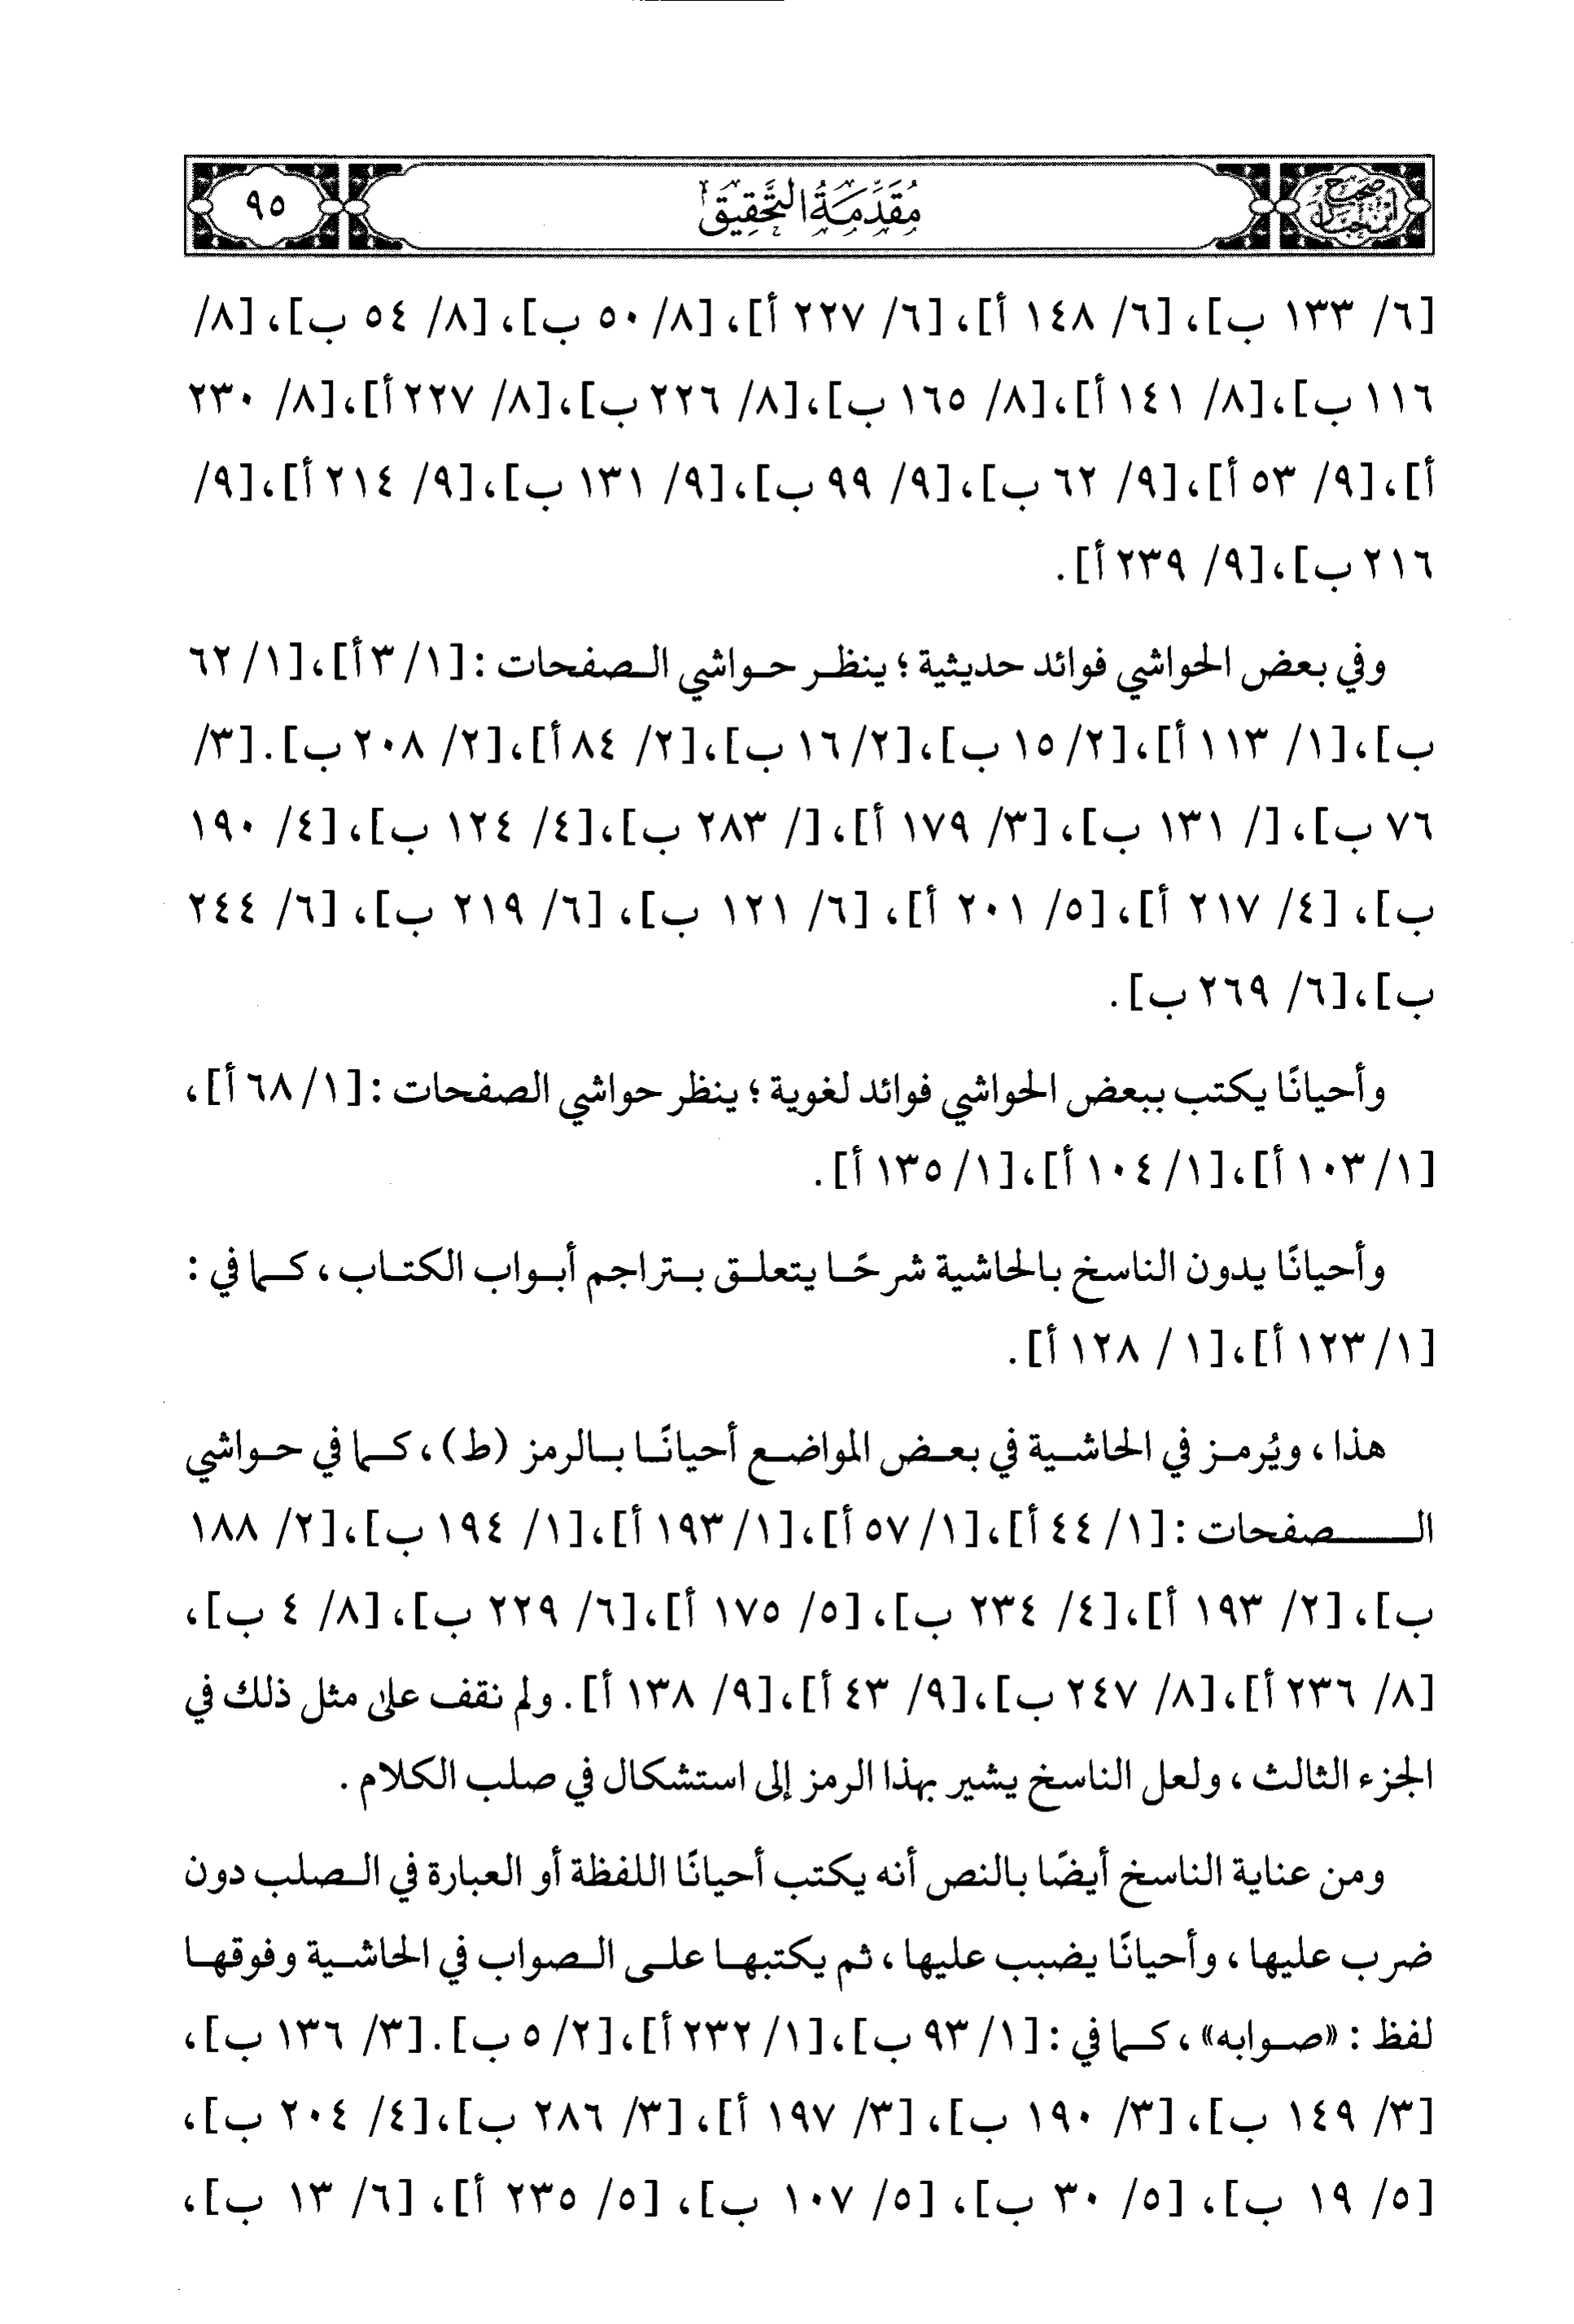 صحيح ابن حبان
مُقَدِّمَةُ التَّحْقِيقِ
٩٥
[٦/ ١٣٣ ب]، [٦/ ١٤٨ أ]، [٦/ ٢٢٧ أ]، [٨/ ٥٠ ب]، [٨/ ٥٤ ب]، [٨/
١١٦ ب]، [٨/ ١٤١ أ]، [٨/ ١٦٥ ب]، [٨/ ٢٢٦ ب]، [٨/ ٢٢٧ أ]، [٨/ ٢٣٠
أ]، [٩/ ٥٣ أ]، [٩/ ٦٢ ب]، [٩/ ٩٩ ب]، [٩/ ١٣١ ب]، [٩/ ٢١٤ أ]، [٩/
٢١٦ ب]، [٩/ ٢٣٩ أ].
وفي بعض الحواشي فوائد حديثية؛ ينظر حواشي الصفحات: [١/ ٣ أ]، [١/ ٦٢
ب]، [١/ ١١٣ أ]، [٢/ ١٥ ب]، [٢/ ١٦ ب]، [٢/ ٨٤ أ]، [٢/ ٢٠٨ ب]. [٣/
٧٦ ب]، [/ ١٣١ ب]، [٣/ ١٧٩ أ]، [/ ٢٨٣ ب]، [٤/ ١٢٤ ب]، [٤/ ١٩٠
ب]، [٤/ ٢١٧ أ]، [٥/ ٢٠١ أ]، [٦/ ١٢١ ب]، [٦/ ٢١٩ ب]، [٦/ ٢٤٤
ب]، [٦/ ٢٦٩ ب].
وأحيانًا يكتب ببعض الحواشي فوائد لغوية؛ ينظر حواشي الصفحات: [١/ ٦٨ أ]،
[١/ ١٠٣ أ]، [١/ ١٠٤ أ]، [١/ ١٣٥ أ].
وأحيانًا يدون الناسخ بالحاشية شرحًا يتعلق بتراجم أبواب الكتاب، كما في:
[١/ ١٢٣ أ]، [١/ ١٢٨ أ].
هذا، ويُرمز في الحاشية في بعض المواضع أحيانًا بالرمز (ط)، كما في حواشي
الصفحات: [١/ ٤٤ أ]، [١/ ٥٧ أ]، [١/ ١٩٣ أ]، [١/ ١٩٤ ب]، [٢/ ١٨٨
ب]، [٢/ ١٩٣ أ]، [٤/ ٢٣٤ ب]، [٥/ ١٧٥ أ]، [٦/ ٢٢٩ ب]، [٨/ ٤ ب]،
[٨/ ٢٣٦ أ]، [٨/ ٢٤٧ ب]، [٩/ ٤٣ أ]، [٩/ ١٣٨ أ]. ولم نقف على مثل ذلك في
الجزء الثالث، ولعل الناسخ يشير بهذا الرمز إلى استشكال في صلب الكلام.
ومن عناية الناسخ أيضًا بالنص أنه يكتب أحيانًا اللفظة أو العبارة في الصلب دون
ضرب عليها، وأحيانًا يضبب عليها، ثم يكتبها على الصواب في الحاشية وفوقها
لفظ: «صوابه»، كما في: [١/ ٩٣ ب]، [١/ ٢٣٢ أ]، [٢/ ٥ ب]. [٣/ ١٣٦ ب]،
[٣/ ١٤٩ ب]، [٣/ ١٩٠ ب]، [٣/ ١٩٧ أ]، [٣/ ٢٨٦ ب]، [٤/ ٢٠٤ ب]،
[٥/ ١٩ ب]، [٥/ ٣٠ ب]، [٥/ ١٠٧ ب]، [٥/ ٢٣٥ أ]، [٦/ ١٣ ب]،